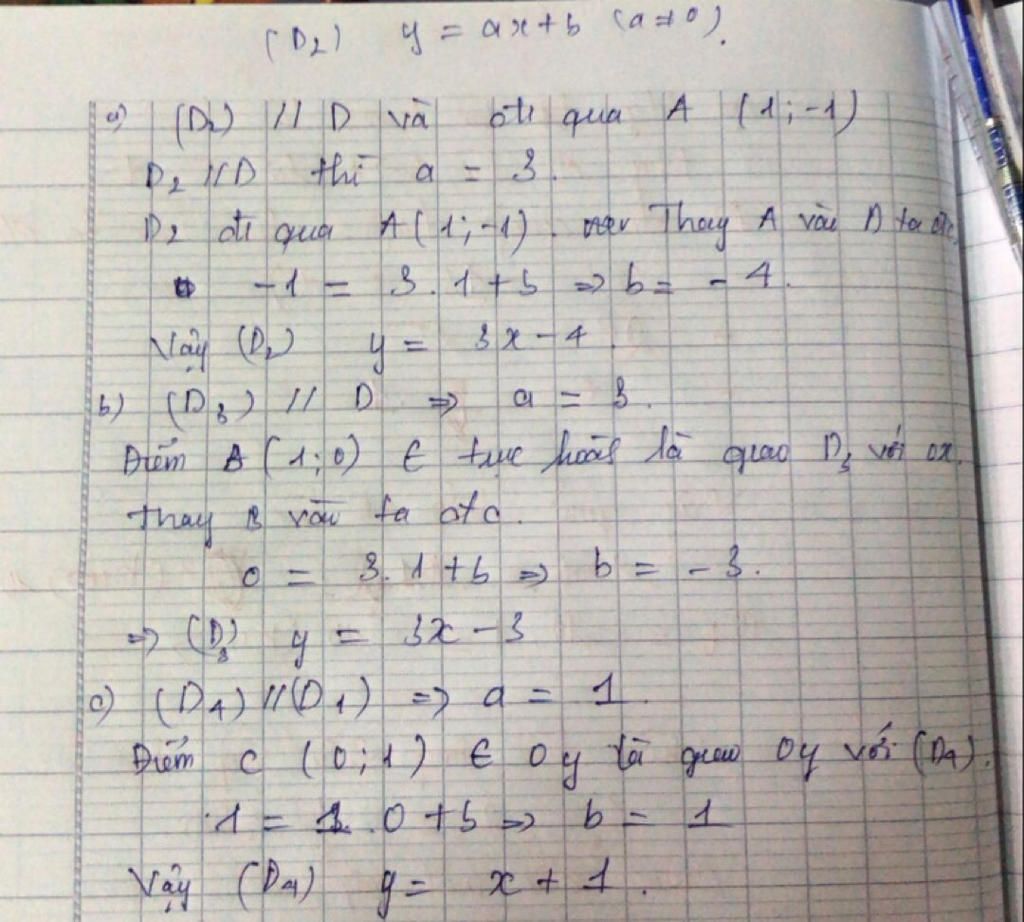 (D2) y = ax + b (a ≠ 0).
a) (D2) // D và đi qua A (1; -1)
D2 // D thì a = 3.
D2 đi qua A (1; -1). Thay A vào D ta đc
-1 = 3.1 + b => b = -4.
Vậy (D2) y = 3x - 4.
b) (D3) // D => a = 3.
Điểm B (1; 0) ∈ trục hoành là giao D3 với ox.
thay B vào ta đc.
0 = 3.1 + b => b = -3.
=> (D3) y = 3x - 3
c) (D4) // (D1) => a = 1
Điểm C (0; 1) ∈ Oy là giao Oy với (D4).
1 = 1.0 + b => b = 1
Vậy (D4) y = x + 1.